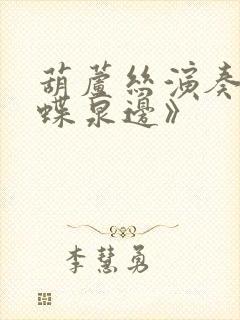 葫蘆絲演奏
蝶泉邊》
李慧勇